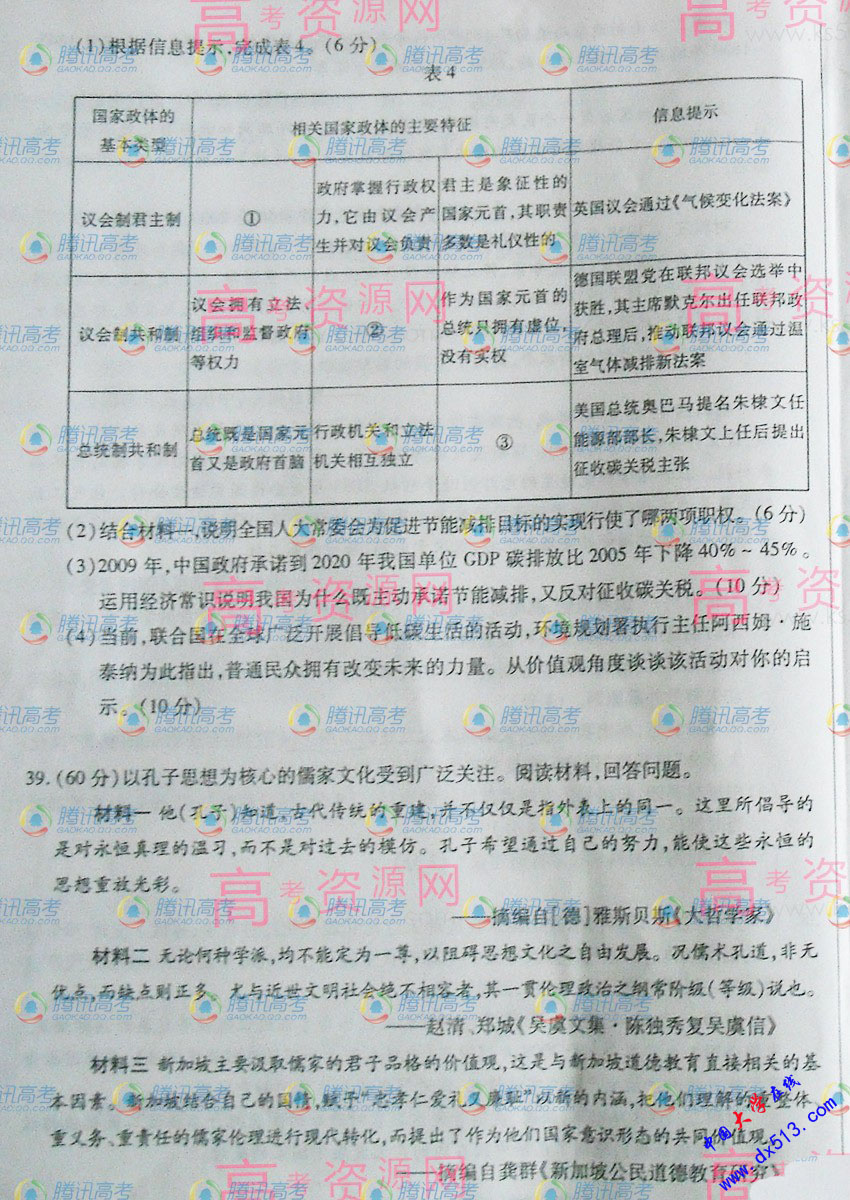 (1)根据信息提示,完成表4。(6分)
表4
国家政体的
基本类型
相关国家政体的主要特征
信息提示
议会制君主制
①
政府掌握行政权
力,它由议会产
生并对议会负责
君主是象征性的
国家元首,其职责
多数是礼仪性的
英国议会通过《气候变化法案》
议会制共和制
议会拥有立法、
组织和监督政府
等权力
②
作为国家元首的
总统只拥有虚位,
没有实权
德国联盟党在联邦议会选举中
获胜,其主席默克尔出任联邦政
府总理后,推动联邦议会通过温
室气体减排新法案
总统制共和制
总统既是国家元
首又是政府首脑
行政机关和立法
机关相互独立
③
美国总统奥巴马提名朱棣文任
能源部部长,朱棣文上任后提出
征收碳关税主张
(2)结合材料一,说明全国人大常委会为促进节能减排目标的实现行使了哪两项职权。(6分)
(3)2009年,中国政府承诺到2020年我国单位GDP碳排放比2005年下降40%~45%。
运用经济常识说明我国为什么既主动承诺节能减排,又反对征收碳关税。(10分)
(4)当前,联合国在全球广泛开展倡导低碳生活的活动,环境规划署执行主任阿西姆·施
泰纳为此指出,普通民众拥有改变未来的力量。从价值观角度谈谈该活动对你的启
示。(10分)
39.(60分)以孔子思想为核心的儒家文化受到广泛关注。阅读材料,回答问题。
材料一 他(孔子)知道,古代传统的重建,并不仅仅是指外表上的同一。这里所倡导的
是对永恒真理的温习,而不是对过去的模仿。孔子希望通过自己的努力,能使这些永恒的
思想重放光彩。
——摘编自[德]雅斯贝斯《大哲学家》
材料二 无论何种学派,均不能定为一尊,以阻碍思想文化之自由发展。况儒术孔道,非无
优点,而缺点则正多。尤与近世文明社会绝不相容者,其一贯伦理政治之纲常阶级(等级)说也。
——赵清、郑城《吴虞文集·陈独秀复吴虞信》
材料三 新加坡主要汲取儒家的君子品格的价值观,这是与新加坡道德教育直接相关的基
本因素。新加坡结合自己的国情,赋予“忠孝仁爱礼义廉耻”以新的内涵,把他们理解的重整体、
重义务、重责任的儒家伦理进行现代转化,而提出了作为他们国家意识形态的共同价值观。
——摘编自龚群《新加坡公民道德教育研究》
中国大学在线
www.dx513.com
高考资源网
腾讯高考
GAOKAO.QQ.COM